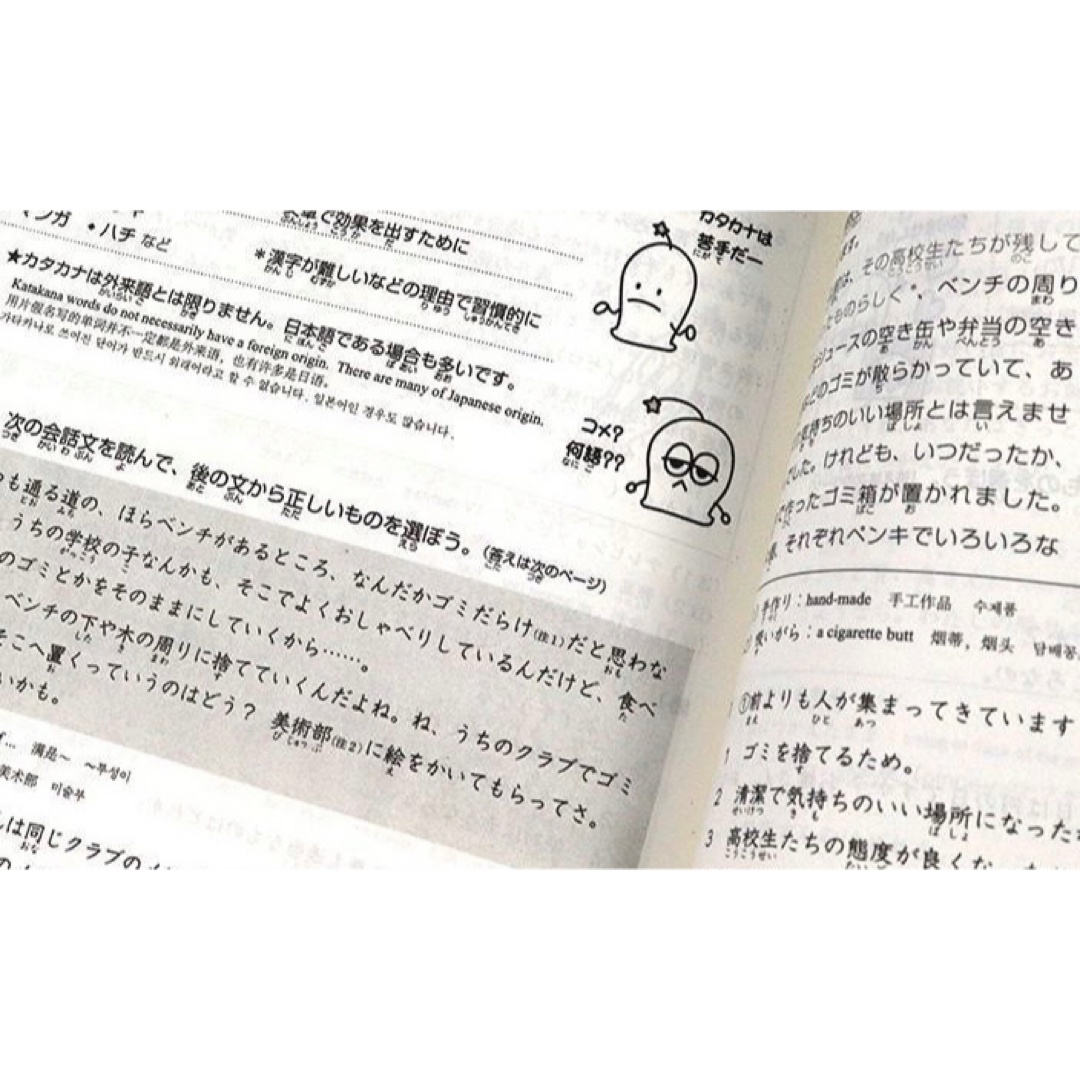 マンガ ・ハチ など
文章で効果を出すために
*漢字が難しいなどの理由で習慣的に
★カタカナは外来語とは限りません。日本語である場合も多いです。
Katakana words do not necessarily have a foreign origin. There are many of Japanese origin.
用片假名写的单词并不一定都是外来语，也有许多是日语。
가타카나로 쓰여진 단어가 반드시 외래어라고 할 수 없습니다. 일본어인 경우도 많습니다.
カタカナは
苦手だー
コメ?
何語??
次の会話文を読んで、後の文から正しいものを選ぼう。(答えは次のページ)
も通る道の、ほらベンチがあるところ、なんだかゴミだらけ(注1)だと思わな
うちの学校の子なんかも、そこでよくおしゃべりしているんだけど、食べ
のゴミとかをそのままにしていくから……。
ベンチの下や木の周りに捨てていくんだよね。ね、うちのクラブでゴミ
そこへ置くっていうのはどう? 美術部(注2)に絵をかいてもらってさ。
いかも。
满是～ ～투성이
美术部 미술부
は同じクラブの
その高校生たちが残して
ものらしく、ベンチの周り
ジュースの空き缶や弁当の空き
どのゴミが散らかっていて、あ
持ちのいい場所とは言えませ
した。けれども、いつだったか、
作ったゴミ箱が置かれました。
それぞれペンキでいろいろな
手作り：hand-made 手工作品 수제품
いがら：a cigarette butt 烟蒂，烟头 담배꽁
①前よりも人が集まってきています
1 ゴミを捨てるため。
2 清潔で気持ちのいい場所になった
3 高校生たちの態度が良くな